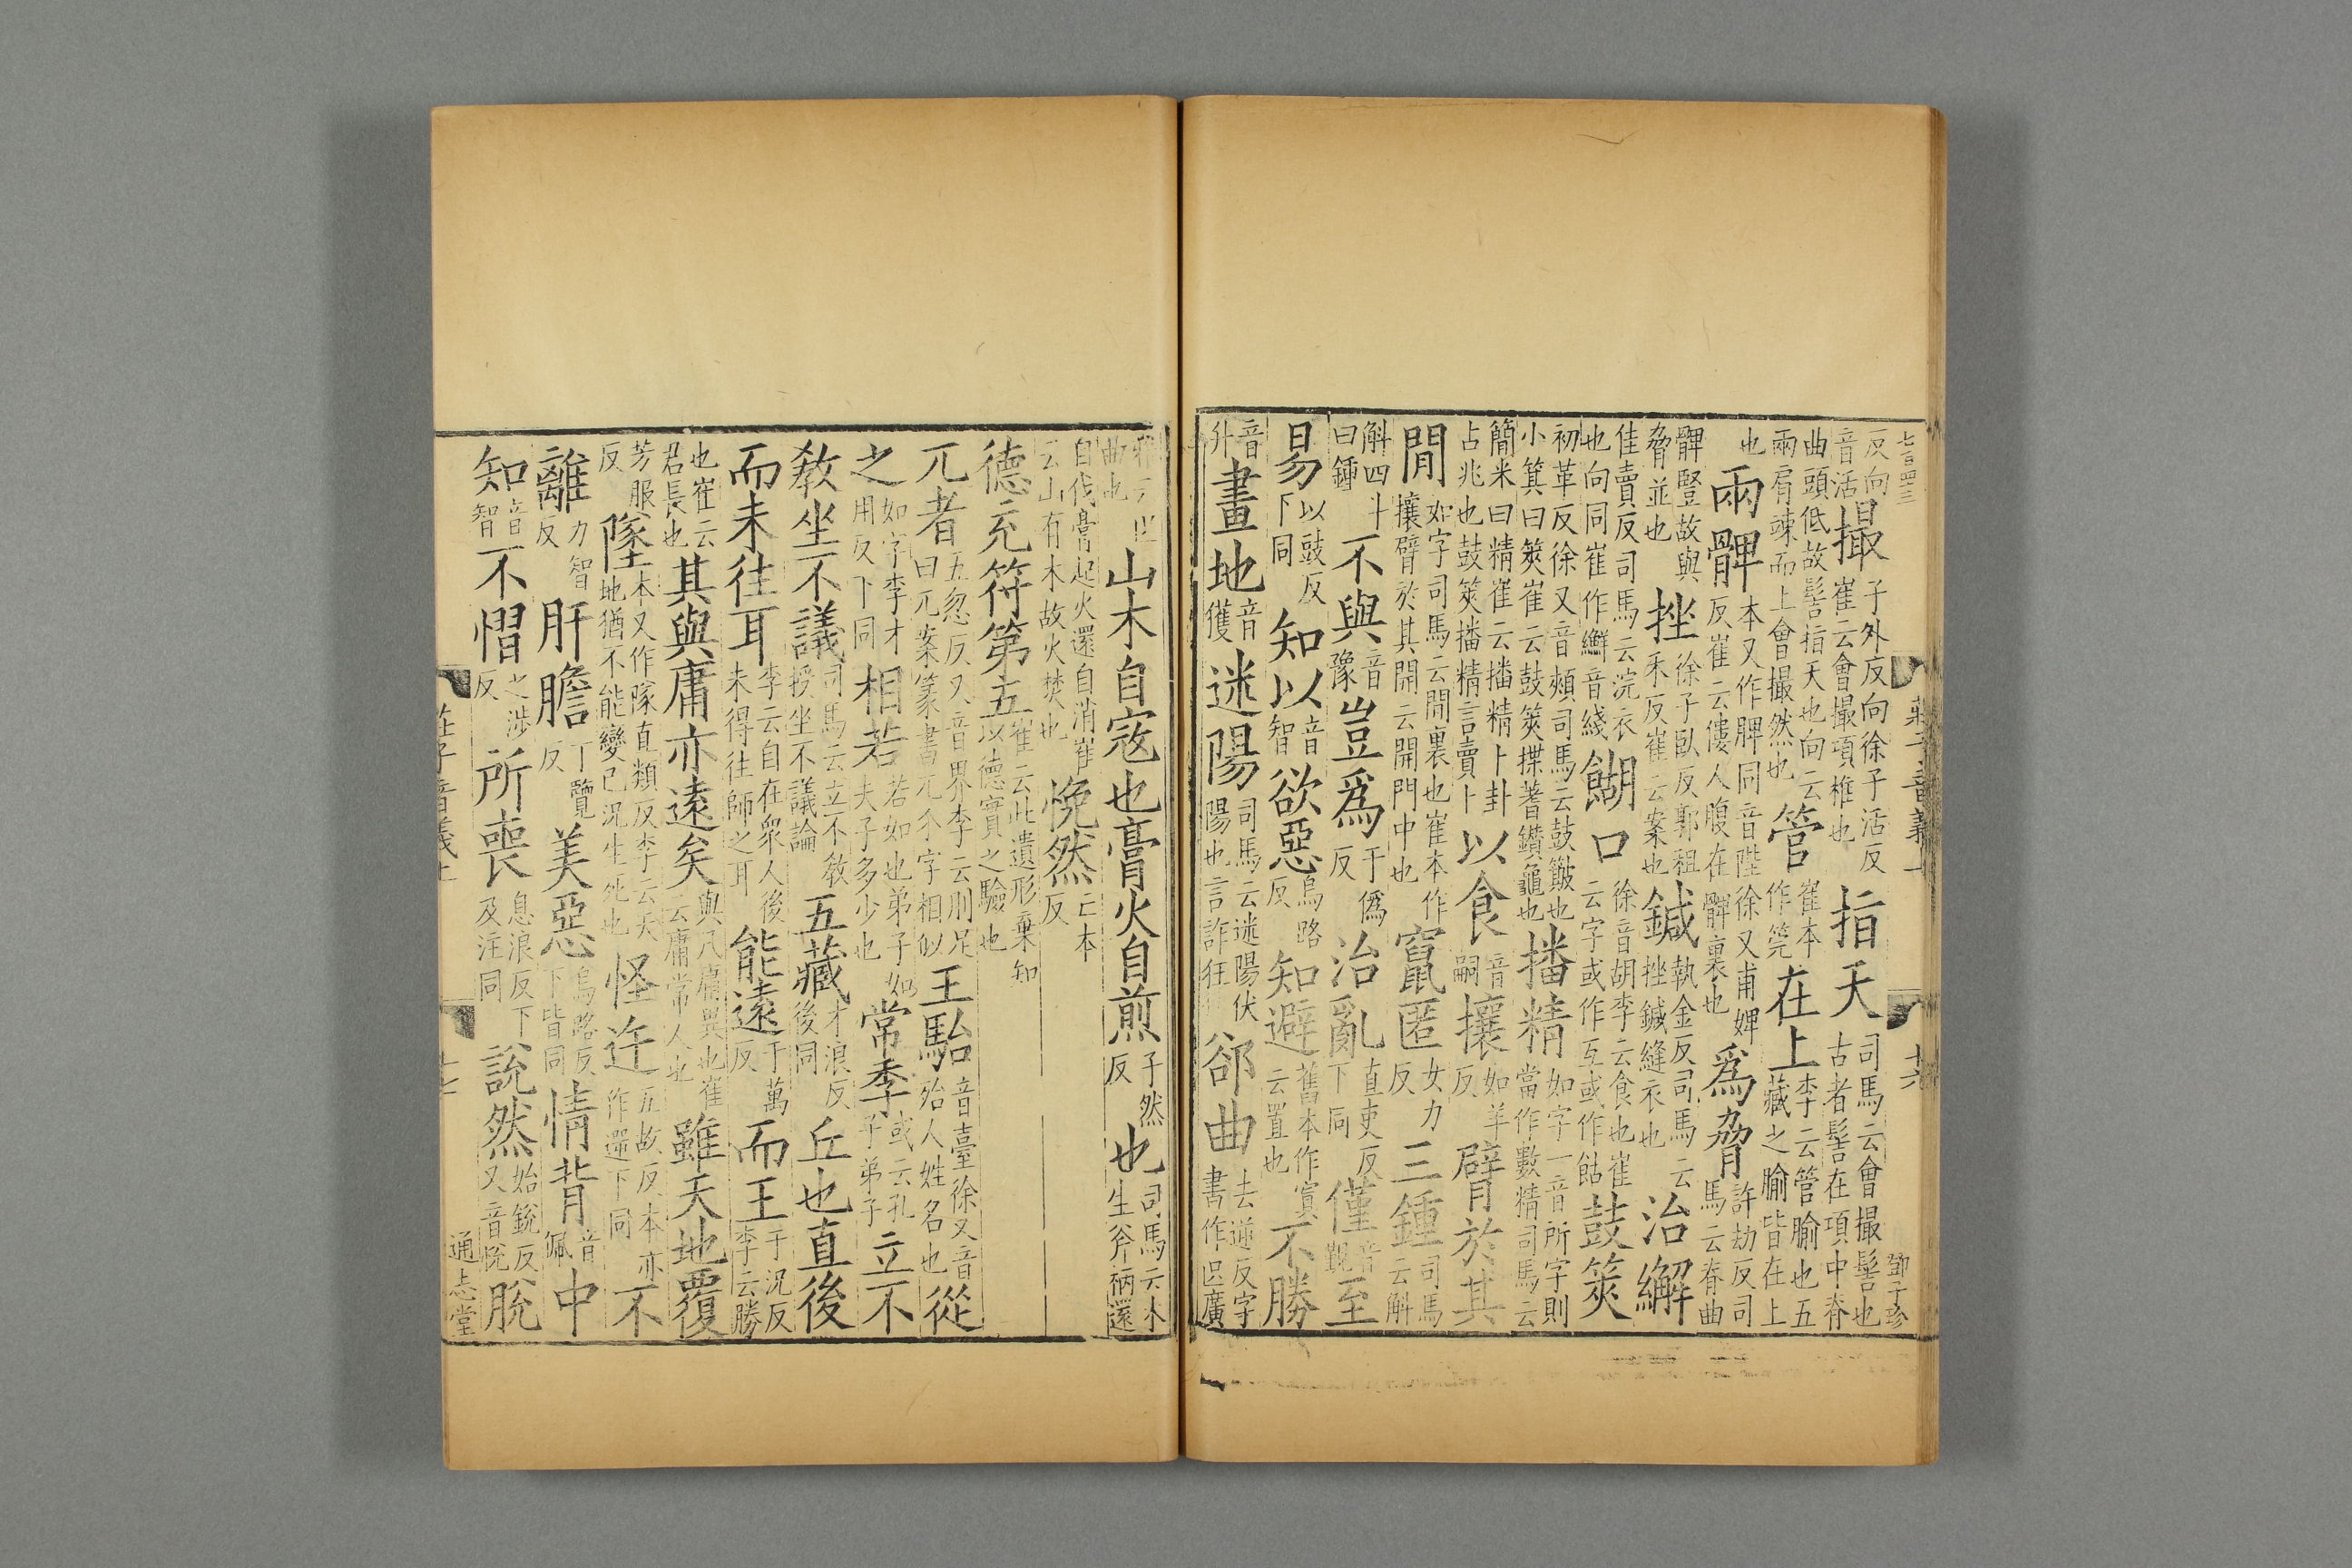 七百四三
反向音活撮子外反向徐子活反崔云會撮項椎也指天司馬云會撮髻也古者髻在項中脊
曲頭低故髻指天也向云兩肩竦而上會撮然也管崔本作筦在上李云管腧也五藏之腧皆在上
也兩髀本又作脾同音陛徐又甫婢反崔云僂人腹在髀裏也為脅許劫反司馬云脊曲
髀豎故與脅並也挫徐子臥反郭租禾反崔云案也鍼執金反司馬云挫鍼縫衣也治繲
佳賣反司馬云浣衣也向同崔作繲音綫餬口徐音胡李云食也崔云字或作互或作𩛩鼓筴
初革反徐又音頰司馬云鼓簸也小箕曰筴崔云鼓筴揲蓍鑽龜也播精如字一音所字則當作數精司馬云
簡米曰精崔云播精卜卦占兆也鼓筴播精言賣卜以食音嗣攘如羊反臂於其
間如字司馬云間裏也崔本作攘臂於其開云開門中也竄匿女力反三鍾司馬云斛
斛四斗曰鍾不與音豫豈為于偽反治亂直吏反下同僅音覲至
易以豉反下同知以音智欲惡烏路反知避舊本作寘云置也不勝
音升畫地音獲迷陽司馬云迷陽伏陽也言詐狂郤曲去逆反字書作𨒜廣
莊子音義上
十六
鄧子珍
雅云𨒜曲也山木自寇也膏火自煎子然反也司馬云木生斧柄還
自伐膏起火還自消崔云山有木故火焚也悗然亡本反
德充符第五崔云此遺形棄知以德實之驗也
兀者五忽反又音界李云刖足曰兀案篆書兀介字相似王駘音臺徐又音殆人姓名也從
之如字李才用反下同相若若如也弟子如夫子多少也常季或云孔子弟子立不
教坐不議司馬云立不教授坐不議論五藏才浪反後同丘也直後
而未往耳李云自在眾人後未得往師之耳能遠于萬反而王于況反李云勝
也崔云君長也其與庸亦遠矣與凡庸異也崔云庸常人也雖天地覆
芳服反墜本又作隊直類反李云天地猶不能變已況生死也怪迕五故反本亦作遻下同不
離力智反肝膽丁覽反美惡烏路反下皆同情背音佩中
知音智不慴之涉反所喪息浪反下及注同說然始銳反又音悅脫
莊子音義上
十七
通志堂